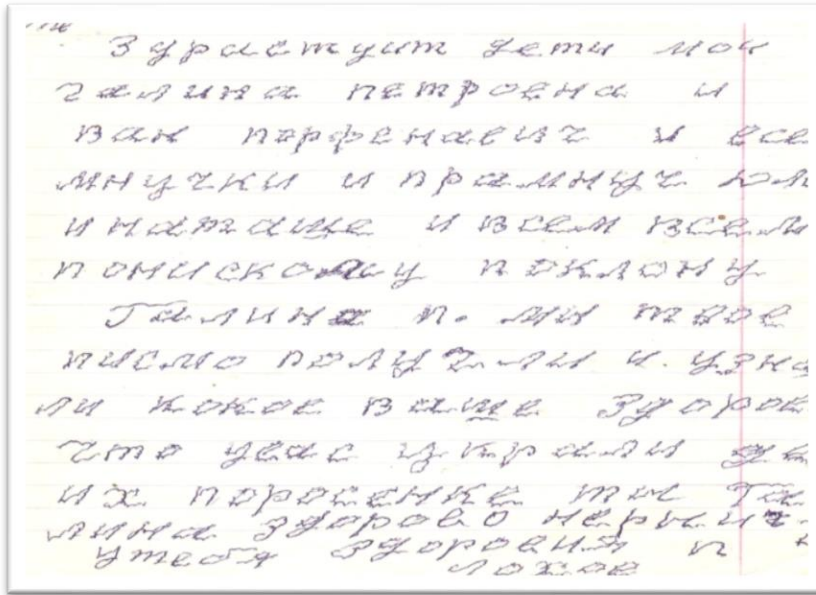 Здраствуит дети мои
галина петровна и
ван порфенавич и все
мнучки и прамнуч
и наташе и всем всем
по низкому поклону
Галина п. ми твое
писмо получ ли и узна
ли кокое ваше здоров
что увас украли дв
их поросенке ты Га
лина здорово нервни
утебя здоровия п
лохое